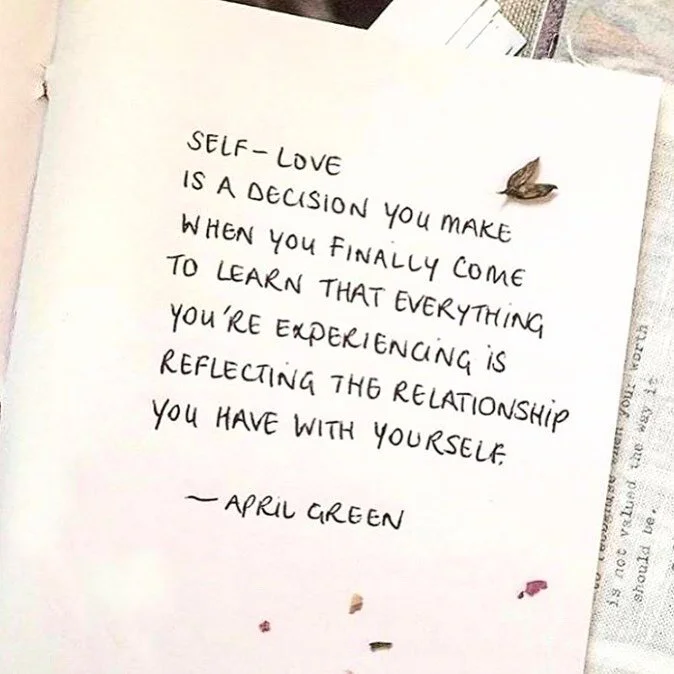 SELF-LOVE
IS A DECISION YOU MAKE
WHEN YOU FINALLY COME
TO LEARN THAT EVERYTHING
YOU'RE EXPERIENCING IS
REFLECTING THE RELATIONSHIP
YOU HAVE WITH YOURSELF.
~ APRIL GREEN
to recognise when your worth
is not valued the way it
should be.